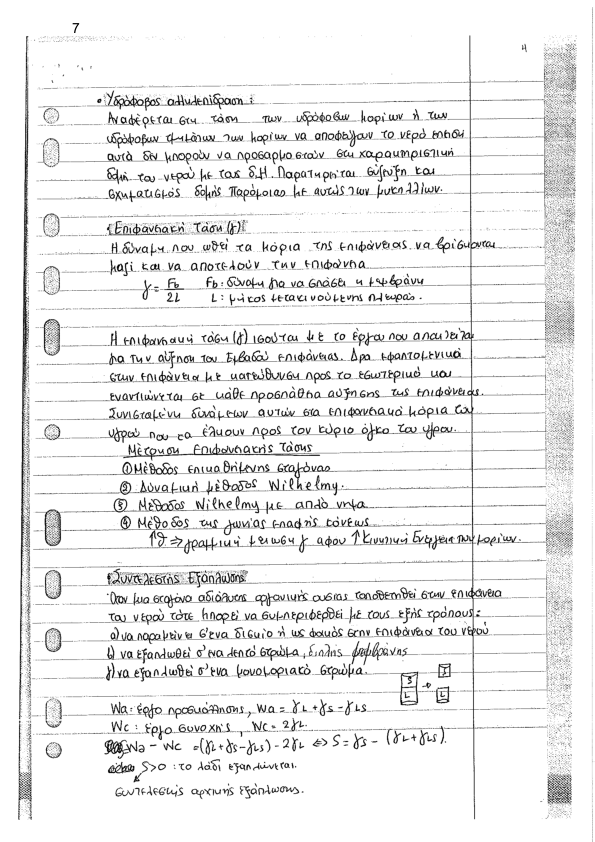 7
4
• Υδρόφοβος αλληλεπίδραση:
Αναφέρεται στη τάση των υδρόφοβων μορίων ή των
υδρόφοβων τμημάτων των μορίων να αποφεύγουν το νερό επειδή
αυτά δεν μπορούν να προσαρμοστούν στη χαρακτηριστική
δομή του νερού με τους δ.Η. Παρατηρείται σύζευξη και
σχηματισμός δομής παρόμοιας με αυτής των μυκηλλίων.
Επιφανειακή τάση (γ)
Η δύναμη που ωθεί τα μόρια της επιφάνειας να βρίσκονται
μαζί και να αποτελούν την επιφάνεια
γ = Fb / 2L Fb: δύναμη για να σπάσει η μεμβράνη
L: μήκος μετακινούμενης πλευράς.
Η επιφανειακή τάση (γ) ισούται με το έργο που απαιτείται
για την αύξηση του εμβαδού επιφάνειας. Δρα εφαπτομενικά
στην επιφάνεια με κατεύθυνση προς το εσωτερικό και
εναντιώνεται σε κάθε προσπάθεια αύξησης της επιφάνειας.
Συνισταμένη δυνάμεων αυτών στα επιφανειακά μόρια του
υγρού που τα έλκουν προς τον κύριο όγκο του υγρού.
Μέτρηση Επιφανειακής Τάσης
① Μέθοδος επικαθήμενης σταγόνας
② Δυναμική μέθοδος Wilhelmy.
③ Μέθοδος Wilhelmy με απλό νήμα
④ Μέθοδος της γωνίας επαφής κόνεως
↑θ ⇒ γραμμική μείωση γ αφού ↑ Κινητική Ενέργεια των μορίων.
Συντελεστής Εξάπλωσης
Όταν μια σταγόνα αδιάλυτης οργανικής ουσίας τοποθετηθεί στην επιφάνεια
του νερού τότε μπορεί να συμπεριφερθεί με τους εξής τρόπους:
α) να παραμείνει σ'ένα δισκίο ή ως φακός στην επιφάνεια του νερού
β) να εξαπλωθεί σ'ένα λεπτό στρώμα, διπλής μεμβράνης
γ) να εξαπλωθεί σ'ένα μονομοριακό στρώμα.
S → S
L L
Wa: έργο προσκόλλησης, Wa = γL + γS - γLS
Wc: έργο συνοχής, Wc = 2γL
Wa - Wc = (γL + γS - γLS) - 2γL ⇔ S = γS - (γL + γLS).
S>0: το λάδι εξαπλώνεται.
συντελεστής αρχικής εξάπλωσης.